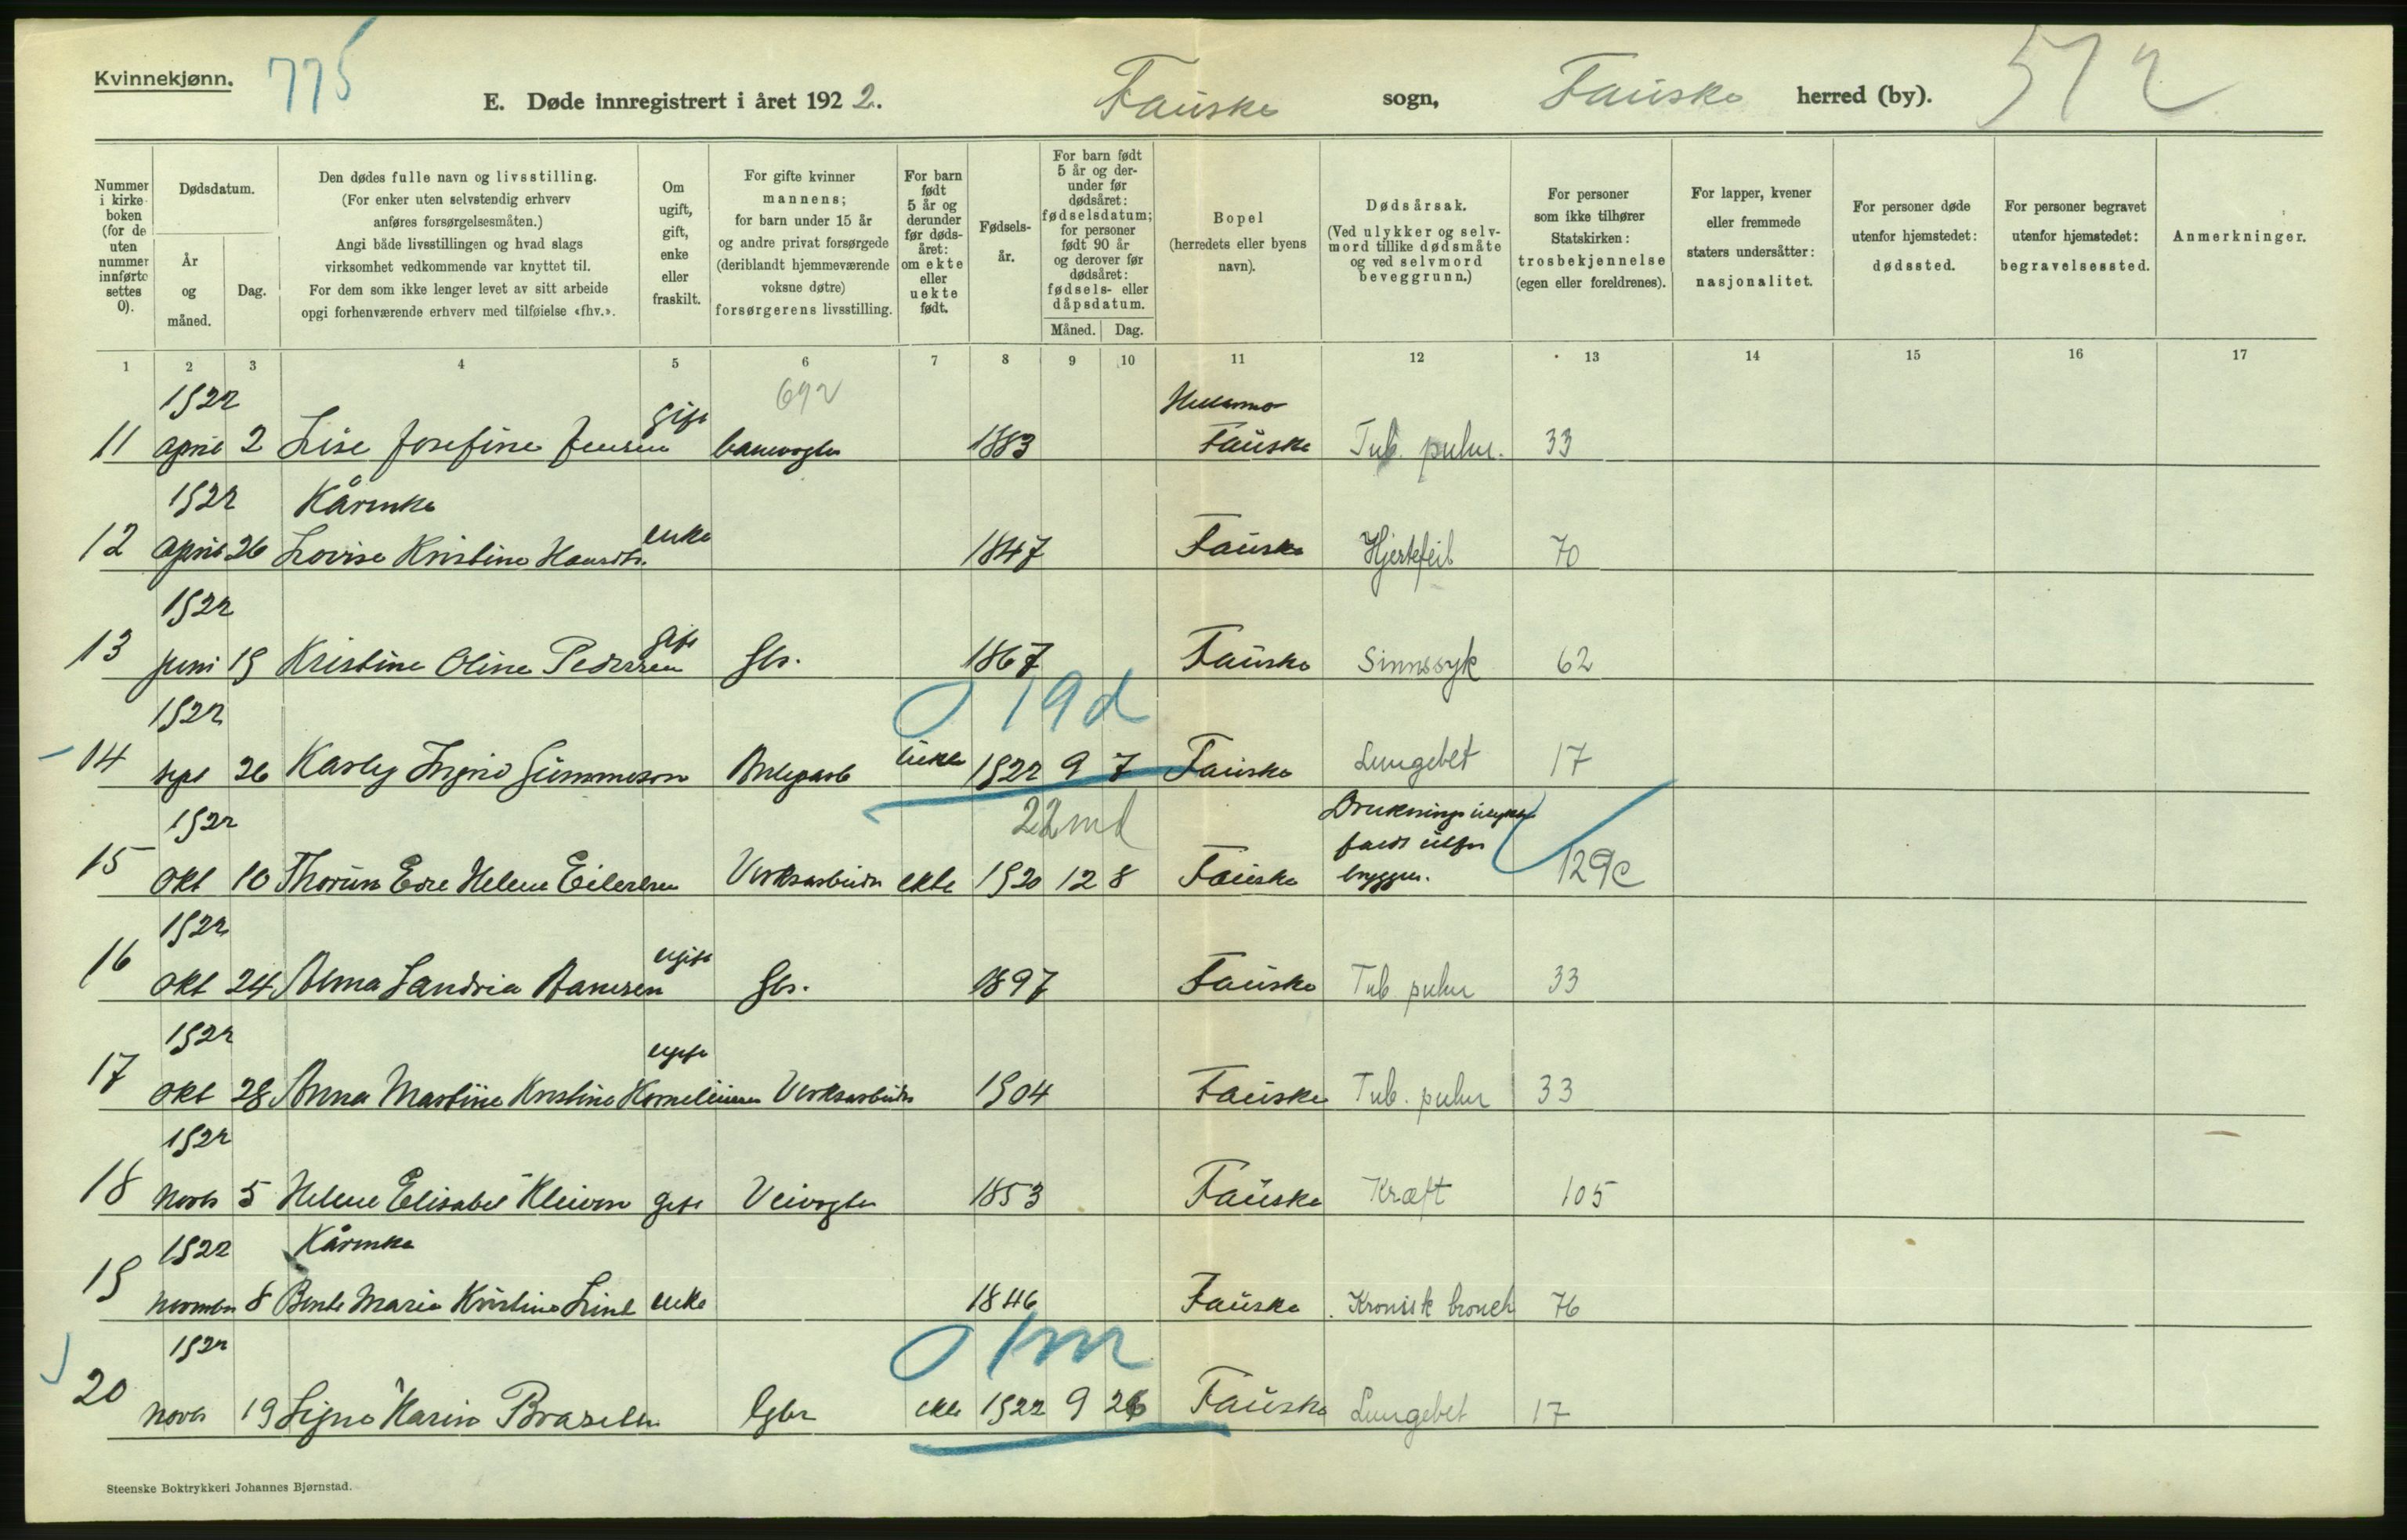 Kvinnekjønn.
775
E. Døde innregistrert i året 1922.
Fauske sogn, Fauske herred (by).
512
Nummer i kirkeboken (for de uten nummer innførte settes 0).
Dødsdatum.
År og måned.
Dag.
Den dødes fulle navn og livsstilling.
(For enker uten selvstendig erhverv
anføres forsørgelsesmåten.)
Angi både livsstillingen og hvad slags
virksomhet vedkommende var knyttet til.
For dem som ikke lenger levet av sitt arbeide
opgi forhenværende erhverv med tilføielse «fhv.».
Om ugift, gift, enke eller fraskilt.
For gifte kvinner
mannens;
for barn under 15 år
og andre privat forsørgede
(deriblandt hjemmeværende
voksne døtre)
forsørgerens livsstilling.
For barn født 5 år og derunder før dødsåret: om ekte eller uekte født.
Fødselsår.
For barn født 5 år og derunder før dødsåret: fødselsdatum; for personer født 90 år og derover før dødsåret: fødsels- eller dåpsdatum.
Måned. Dag.
Bopel
(herredets eller byens
navn).
Dødsårsak.
(Ved ulykker og selvmord tillike dødsmåte
og ved selvmord
beveggrunn.)
For personer
som ikke tilhører
Statskirken:
trosbekjennelse
(egen eller foreldrenes).
For lapper, kvener
eller fremmede
staters undersåtter:
nasjonalitet.
For personer døde
utenfor hjemstedet:
dødssted.
For personer begravet
utenfor hjemstedet:
begravelsessted.
Anmerkninger.
1 2 3 4 5 6 7 8 9 10 11 12 13 14 15 16 17
1922 692
11 april 2 Lise Josefine Jensen gift banevogter 1883 Fauske Tub. pulm. 33
1922 Kårenke
12 april 26 Lovise Kristine enke 1847 Fauske Hjertefeil 70
1922
13 juni 19 Kristine Oline Pedersen gift Gbr. 1867 Fauske Sinnssyk 62
1922 0 19 d
14 sept 26 Ingrid uekte 1922 9 7 Fauske Lungebet 17
1922 22 md Drukningsulykke
15 okt 10 Helene Eilertsen Verksarbeider ekte 1920 12 8 Fauske faldt utfor bryggen. 129c
1922
16 okt 24 Alma Sandria ugift Gbr. 1897 Fauske Tub pulm 33
1922
17 okt 28 Anna Martine Kristine Korneliussen ugift Verksarbeider 1904 Fauske Tub. pulm 33
1922
18 Novb 5 Helene Elisabet Kleiven gift Veivogter 1853 Fauske Kræft 105
1922 Kårenke
19 November 8 Maria Kristine enke 1846 Fauske Kronisk bronch 76
1922 0 1 m
20 Novb 19 Signe Karin Gbr ekte 1922 9 26 Fauske Lungebet 17
Steenske Boktrykkeri Johannes Bjørnstad.